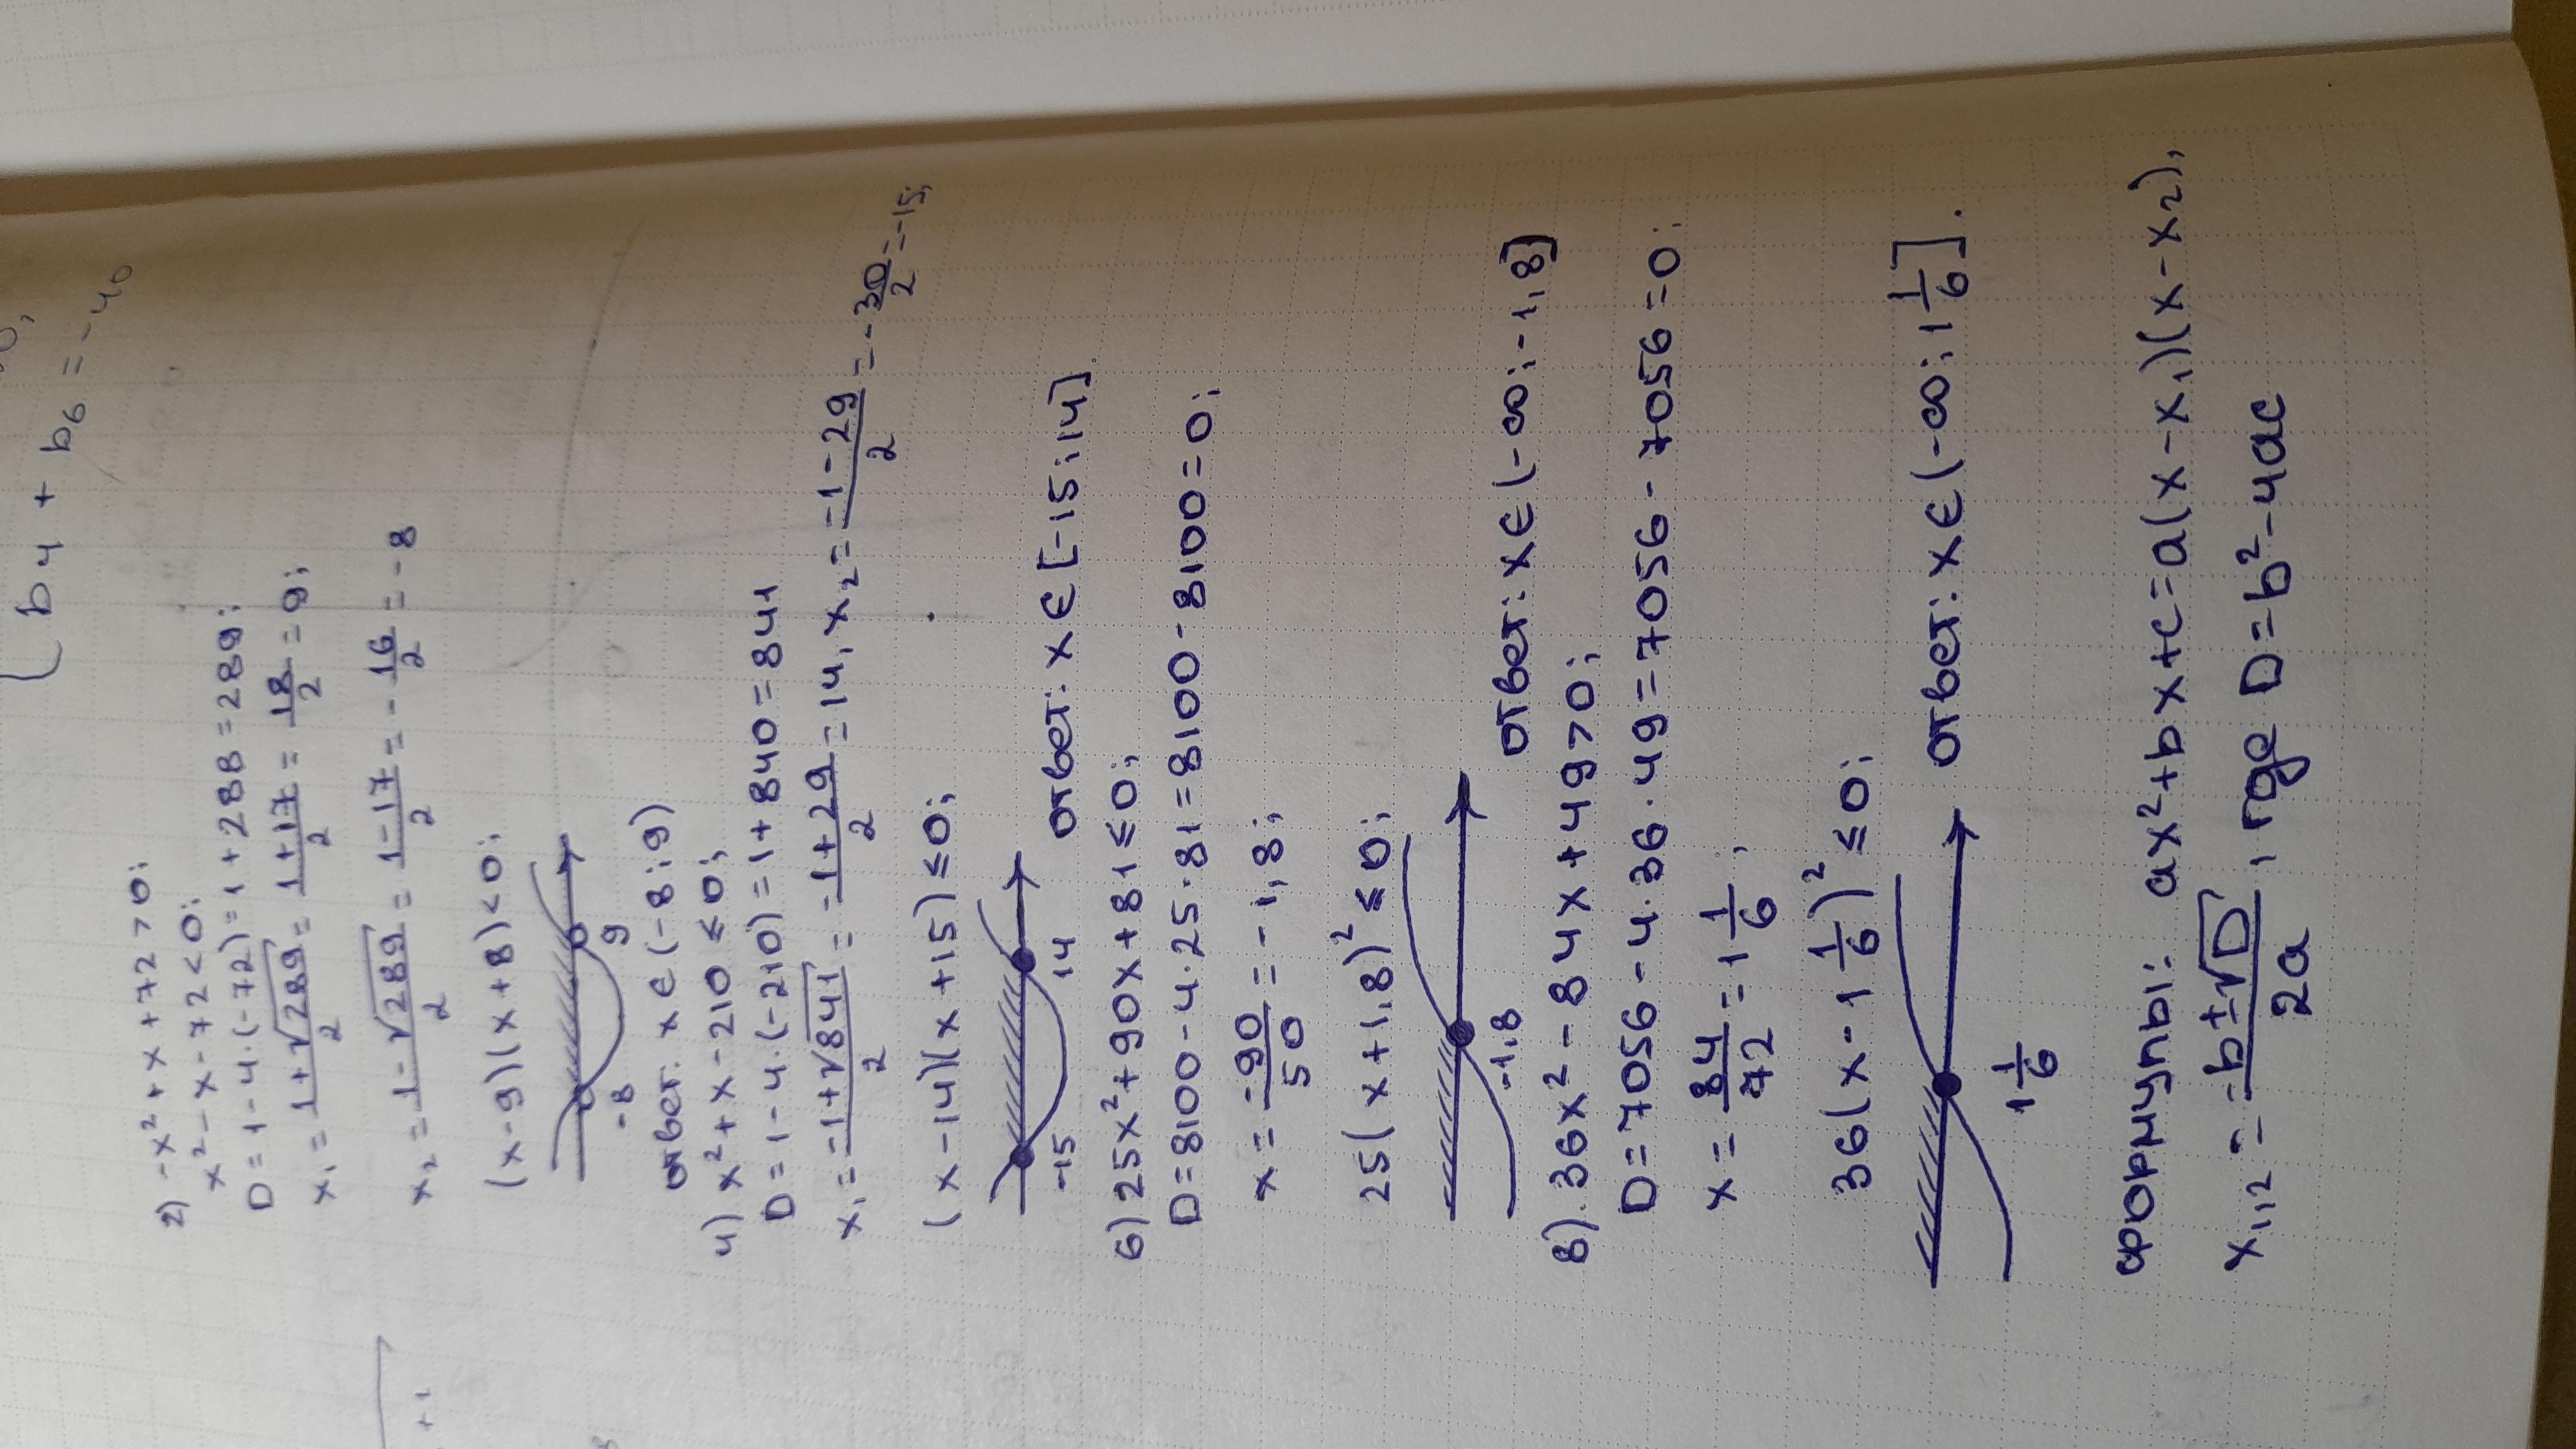 b₄ + b₆ = -40
2) -x² + x + 72 > 0;
x² - x - 72 < 0;
D = 1 - 4·(-72) = 1 + 288 = 289;
x₁ = (1+√289)/2 = (1+17)/2 = 18/2 = 9;
x₂ = (1-√289)/2 = (1-17)/2 = -16/2 = -8
(x-9)(x+8)<0;
-8 9
ответ: x ∈ (-8; 9)
4) x² + x - 210 ≤ 0;
D = 1 - 4·(-210) = 1 + 840 = 841
x₁ = (-1+√841)/2 = (-1+29)/2 = 14, x₂ = (-1-29)/2 = -30/2 = -15;
(x-14)(x+15) ≤ 0;
-15 14
ответ: x ∈ [-15; 14]
6) 25x² + 90x + 81 ≤ 0;
D = 8100 - 4·25·81 = 8100 - 8100 = 0;
x = -90/50 = -1,8;
25(x+1,8)² ≤ 0;
-1,8
ответ: x ∈ (-∞; -1,8]
8). 36x² - 84x + 49 > 0;
D = 7056 - 4·36·49 = 7056 - 7056 = 0;
x = 84/72 = 1 1/6,
36(x - 1 1/6)² ≤ 0;
1 1/6
ответ: x ∈ (-∞; 1 1/6].
формулы: ax² + bx + c = a(x-x₁)(x-x₂),
x₁,₂ = (-b±√D)/2a, где D = b² - 4ac